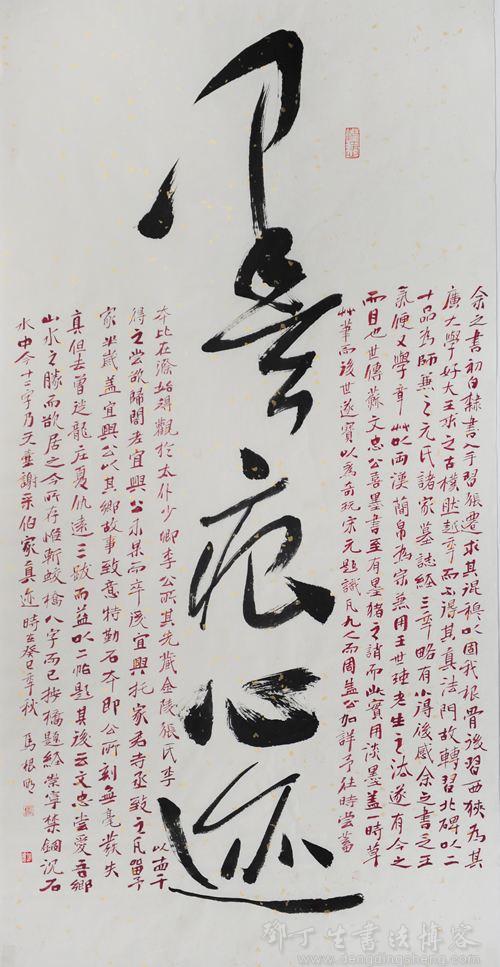 墨痕心迹
余之書初自隸書入手習張遷求其混樸以固我根骨後習西狹為其
廣大學好大王求之古樸然越年而不得其真法門故轉習北碑以二
十品為師兼之元氏諸家墓誌經三年略有小得後感余之書之王
氣便又學章艸以兩漢簡帛為宗兼用王世鏜老生之法遂有今之
面目也世傳蘇文忠公喜墨書至有墨猪之誚而此實用淡墨蓋一時草
艸筆而後世遂寶以為奇玩宋元題識凡九人而周益公加詳予往時嘗蓄
本比在滁始得觀於太仆少卿李公所其先藏金陵張氏李
得之嘗欲歸閣老宜興公未果而卒後宜興托家君寺丞致之凡留予
家半歲蓋宜興公以其鄉故事致意特勤石本即公所刻無毫髮失
真但去曾從龍莊夏仇遠三跋而益以二帖題其後云文忠嘗愛吾鄉
山水之勝而欲居之今所存惟斬蛟橋八字而已按橋題經崇寧禁錮沉石
水中今十三字乃天臺謝采伯家真迹 時在癸巳年秋 馬根明
鄧丁生書法博客
www.dengdingsheng.com